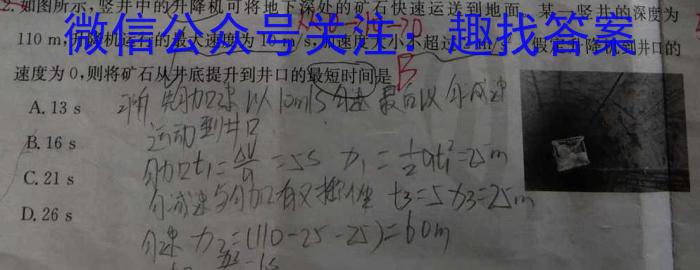 2.如图所示,竖井中的升降机可将地下深处的矿石快速运送到地面。某一竖井的深度为
110 m,升降机运行的最大速度为 10 m/s,加速度大小不超过
微信公众号关注:趣找答案
假定升降机到井口的
速度为 0,则将矿石从井底提升到井口的最短时间是
B
A. 13 s
B. 16 s
C. 21 s
D. 26 s
以10m/s匀速 最后以匀减速
运动到井口
匀加 t₁=ΔV/a=5s x₁=½at₁²=25m
匀减速与匀加有对称性 t₃=5 x₃=25m
匀速 x₂=(110-25-25)=60m